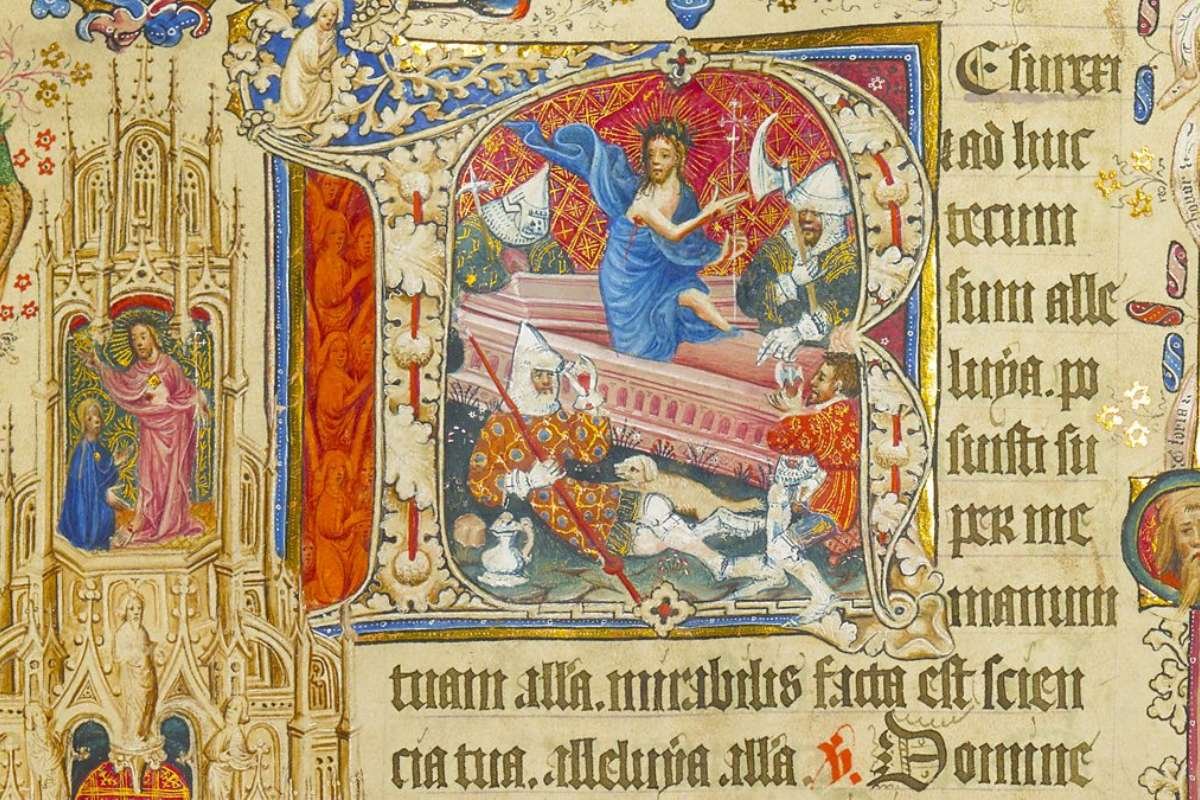 REsurrexi
& ad huc
tecum
sum alle
luya. po
suisti su
per me
manum
tuam alla. mirabilis facta est scien
cia tua. alleluya alla V. Domine